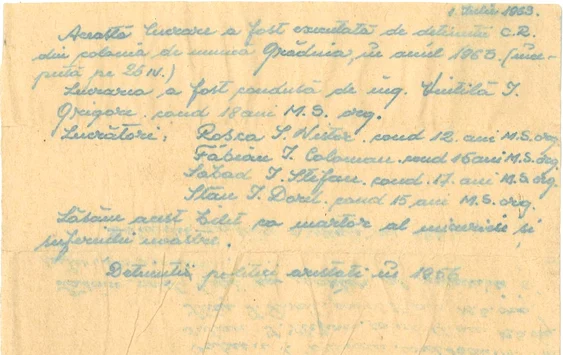 1 Iulie 1963.
Această lucrare a fost executată de deținuții C.R.
din colonia de muncă Grădina, în anul 1963 (înce-
pută pe 25 IV.)
Lucrarea a fost condusă de ing. Vintilă I.
Grigore. cond 18 ani M.S. org.
Lucrători: Roșca S. Victor. cond 12. ani M.S. org.
Fábián I. Coloman. cond 16 ani M.S. org.
Sabad I. Ștefan. cond. 17. ani M.S. org.
Stan I. Doril. cond 15 ani M.S. org.
Lăsăm acest bilet ca martor al muncii și
suferinței noastre.
Deținuții politici arestați în 1956